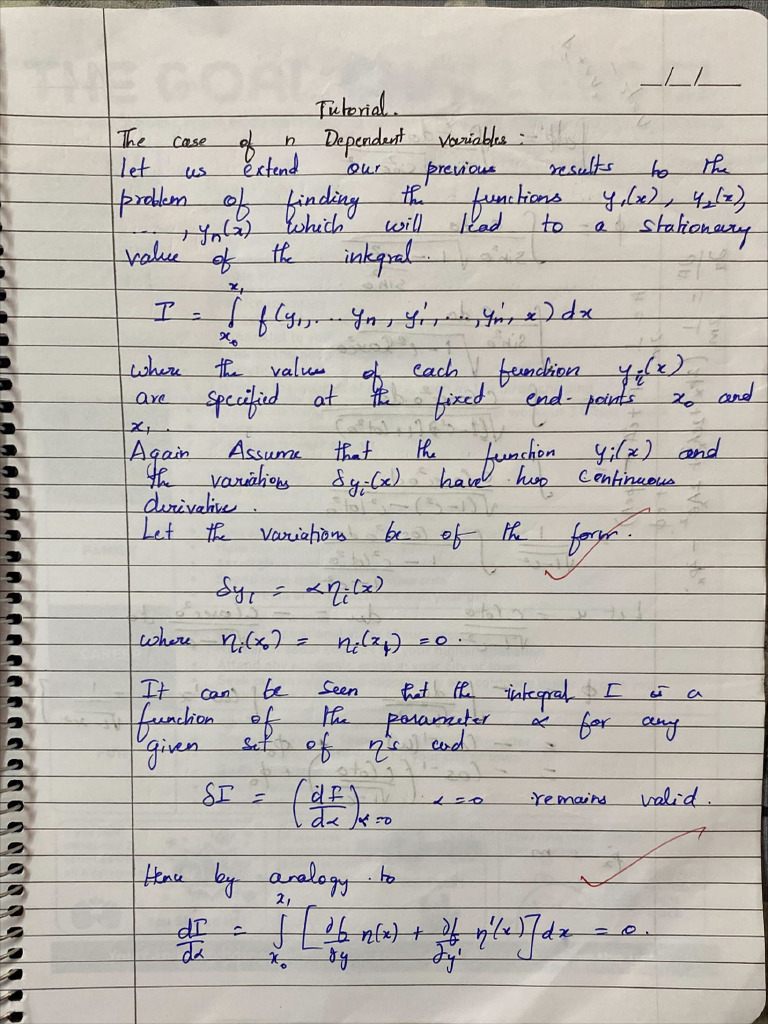 _/_/_
Tutorial.
The case of n Dependent variables :
Let us extend our previous results to the
problem of finding the functions y₁(x), y₂(x),
..., yₙ(x) which will lead to a stationary
value of the integral.
I = ∫_{x₀}^{x₁} f(y₁, ... yₙ, y₁', ..., yₙ', x) dx
where the values of each function yᵢ(x)
are specified at the fixed end-points x₀ and
x₁.
Again Assume that the function yᵢ(x) and
the variations δyᵢ(x) have two continuous
derivative.
Let the variations be of the form.
δyᵢ = αηᵢ(x)
where ηᵢ(x₀) = ηᵢ(x₁) = 0.
It can be seen that the integral I is a
function of the parameter α for any
given set of η's and
δI = (dI/dα)_{α=0} α=0 remains valid.
Hence by analogy to
dI/dα = ∫_{x₀}^{x₁} [∂f/∂y η(x) + ∂f/∂y' η'(x)] dx = 0.